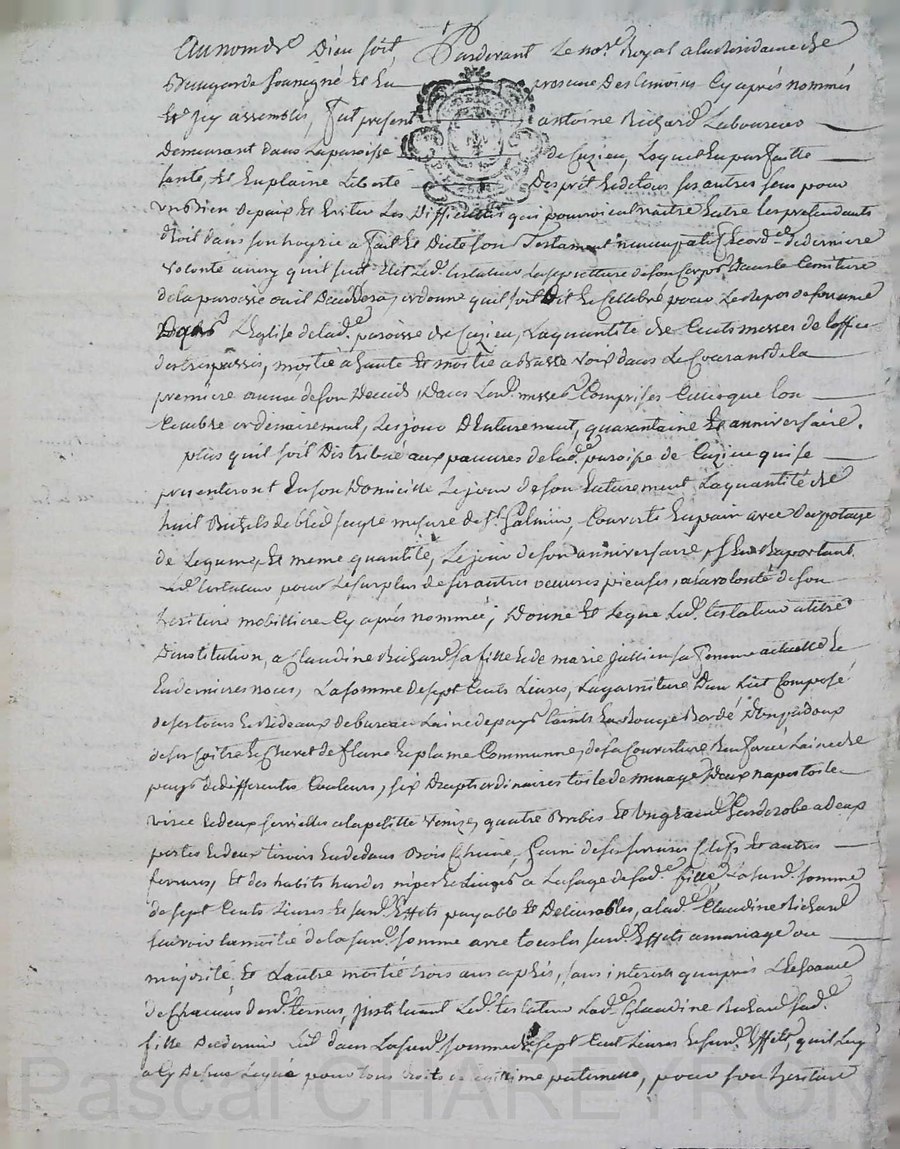 Au nom de Dieu soit Pardevant Le nore Royal a la Residance de
Beaugarde Soussigné Et En presence Des temoins Cy aprés nommés
Et Icy assemblés, fut present antoine Richard Laboureur
Demeurant dans La paroisse de Cuzieu, Lequel En parfaitte
santé, Et En plaine Liberté Desprit Et de tous ses autres sens pour
un Bien de paix Et Eviter Les Difficultés qui pourroient naitre Entre Les pretendants
droit dans son hoyrie a fait Et Dicté son Testament nuncupatif Et ord.ce de derniere
volonté ainsy quil suit Elit Led. testateur La sepulture de son Corps Dans le Cimitiere
de la paroisse ou il Deceddera, ordonne quil soit Dit Et Cellebré pour Le Repos de son ame
Dans L'Eglise de lad.e paroisse de Cuzieu, La quantité de Cents messes de Loffice
des trespassés, moitié a haute Et moitié a Basse voix dans Le Courant de la
premiere année de son Decéds, Dans Lesd. messes Comprises Celles que Lon
Cellebre ordinairement, Les jours D'Enterrement, quarantaine Et anniversaire.
plus quil soit Distribué aux pauvres de lad.e paroisse de Cuzieu qui se
presenteront En son Domicille Le jour de son Enterrement La quantité de
huit Bichets de bled seigle mesure de St. Galmier, Convertis En pain avec Du potage
de Legume, Et meme quantité, Le jour de son anniversaire, s'En Raportant
Led. testateur pour Le surplus de ses autres oeuvres pieuses, a la volonté de son
heritiere mobilliere Cy aprés nommée; Donne Et Legue Led. testateur a titre
D'institution, a Claudine Richard sa fille Et de marie Jullien sa femme actuelle Et
En dernieres noces, La somme de sept Cents Livres, La garniture D'un Lict Composé
de ses tours Et Rideaux de bureau Laine de pays teints En Rouge Bordé
de ses Coitre Et Chevet de Plume Communne, de sa Couverture Renforcée Laine de
pays de differentes Couleurs, six Draps ordinaires toille de menage, Deux napes toile
Et deux serviettes a la petitte Venize, quatre Brebis Et Un grand garderobe a deux
portes Et deux tiroirs En dedans Bois Chaine, Garni de ses serrures Clefs Et autres
ferrures, Et des habits hardes nipes Et Linges a L'usage de sad.e fille La susd. somme
de sept Cents Livres Et susd. Effets payable Et Delivrables, a lad.e Claudine Richard
scavoir La moitié de la susd. somme avec tous les susd. Effets a mariage ou
majorité, Et L'autre moitié trois ans aprés, sans interets qu'aprés L'Echeance
de Chacuns desd. termes, Instituant Led. testateur Lad.e Claudine Richard sad.
fille heritiere dans La susd. somme de sept Cent Livres Et susd. Effets, quil Luy
a Cy Dessus Legué pour tous droits de Legitime paternelle, pour son heritiere
Pascal CHAREYRON